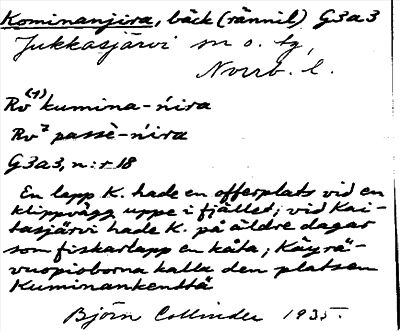 Kominanjira, bäck (rännil) G3a3
Jukkasjärvi sn o. tg,
Norrb. l.
Rv(1) kumina-ńira
Rv2 passè-ńira
G3a3, n:r 18
En lapp K. hade en offerplats vid en
klippvägg uppe i fjället; vid Kai-
tasjärvi hade K. på äldre dagar
som fiskarlapp en kåta; Käyrä-
vuopioborna kalla den platsen
Kuminankenttä
Björn Collinder 1935.